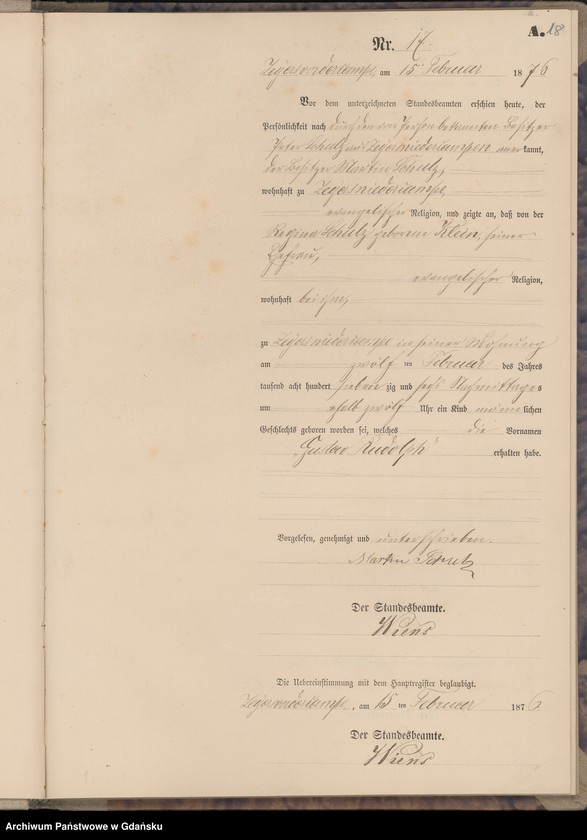 A. 18
Nr. 17.
Zeyersniedercampe, am 15 Februar 1876
Vor dem unterzeichneten Standesbeamten erschien heute, der
Persönlichkeit nach durch den von Person bekannten Besitzer
Peter Schulz aus Zeyersniedercampen anerkannt,
der Besitzer Martin Schulz,
wohnhaft zu Zeyersniedercampe,
evangelischer Religion, und zeigte an, daß von der
Regina Schulz geborene Klein, seiner
Ehefrau,
evangelischer Religion,
wohnhaft bei ihm,
zu Zeyersniedercampe in seiner Wohnung
am zwölf ten Februar des Jahres
tausend acht hundert sieben zig und sechs Nachmittages
um ehalb zwölf Uhr ein Kind männlichen
Geschlechts geboren worden sei, welches die Vornamen
"Gustav Rudolph" erhalten habe.
Vorgelesen, genehmigt und unterschrieben.
Martin Schulz
Der Standesbeamte.
Wiens
Die Uebereinstimmung mit dem Hauptregister beglaubigt.
Zeyersniedercampe, am 15 ten Februar 1876
Der Standesbeamte.
Wiens
Archiwum Państwowe w Gdańsku